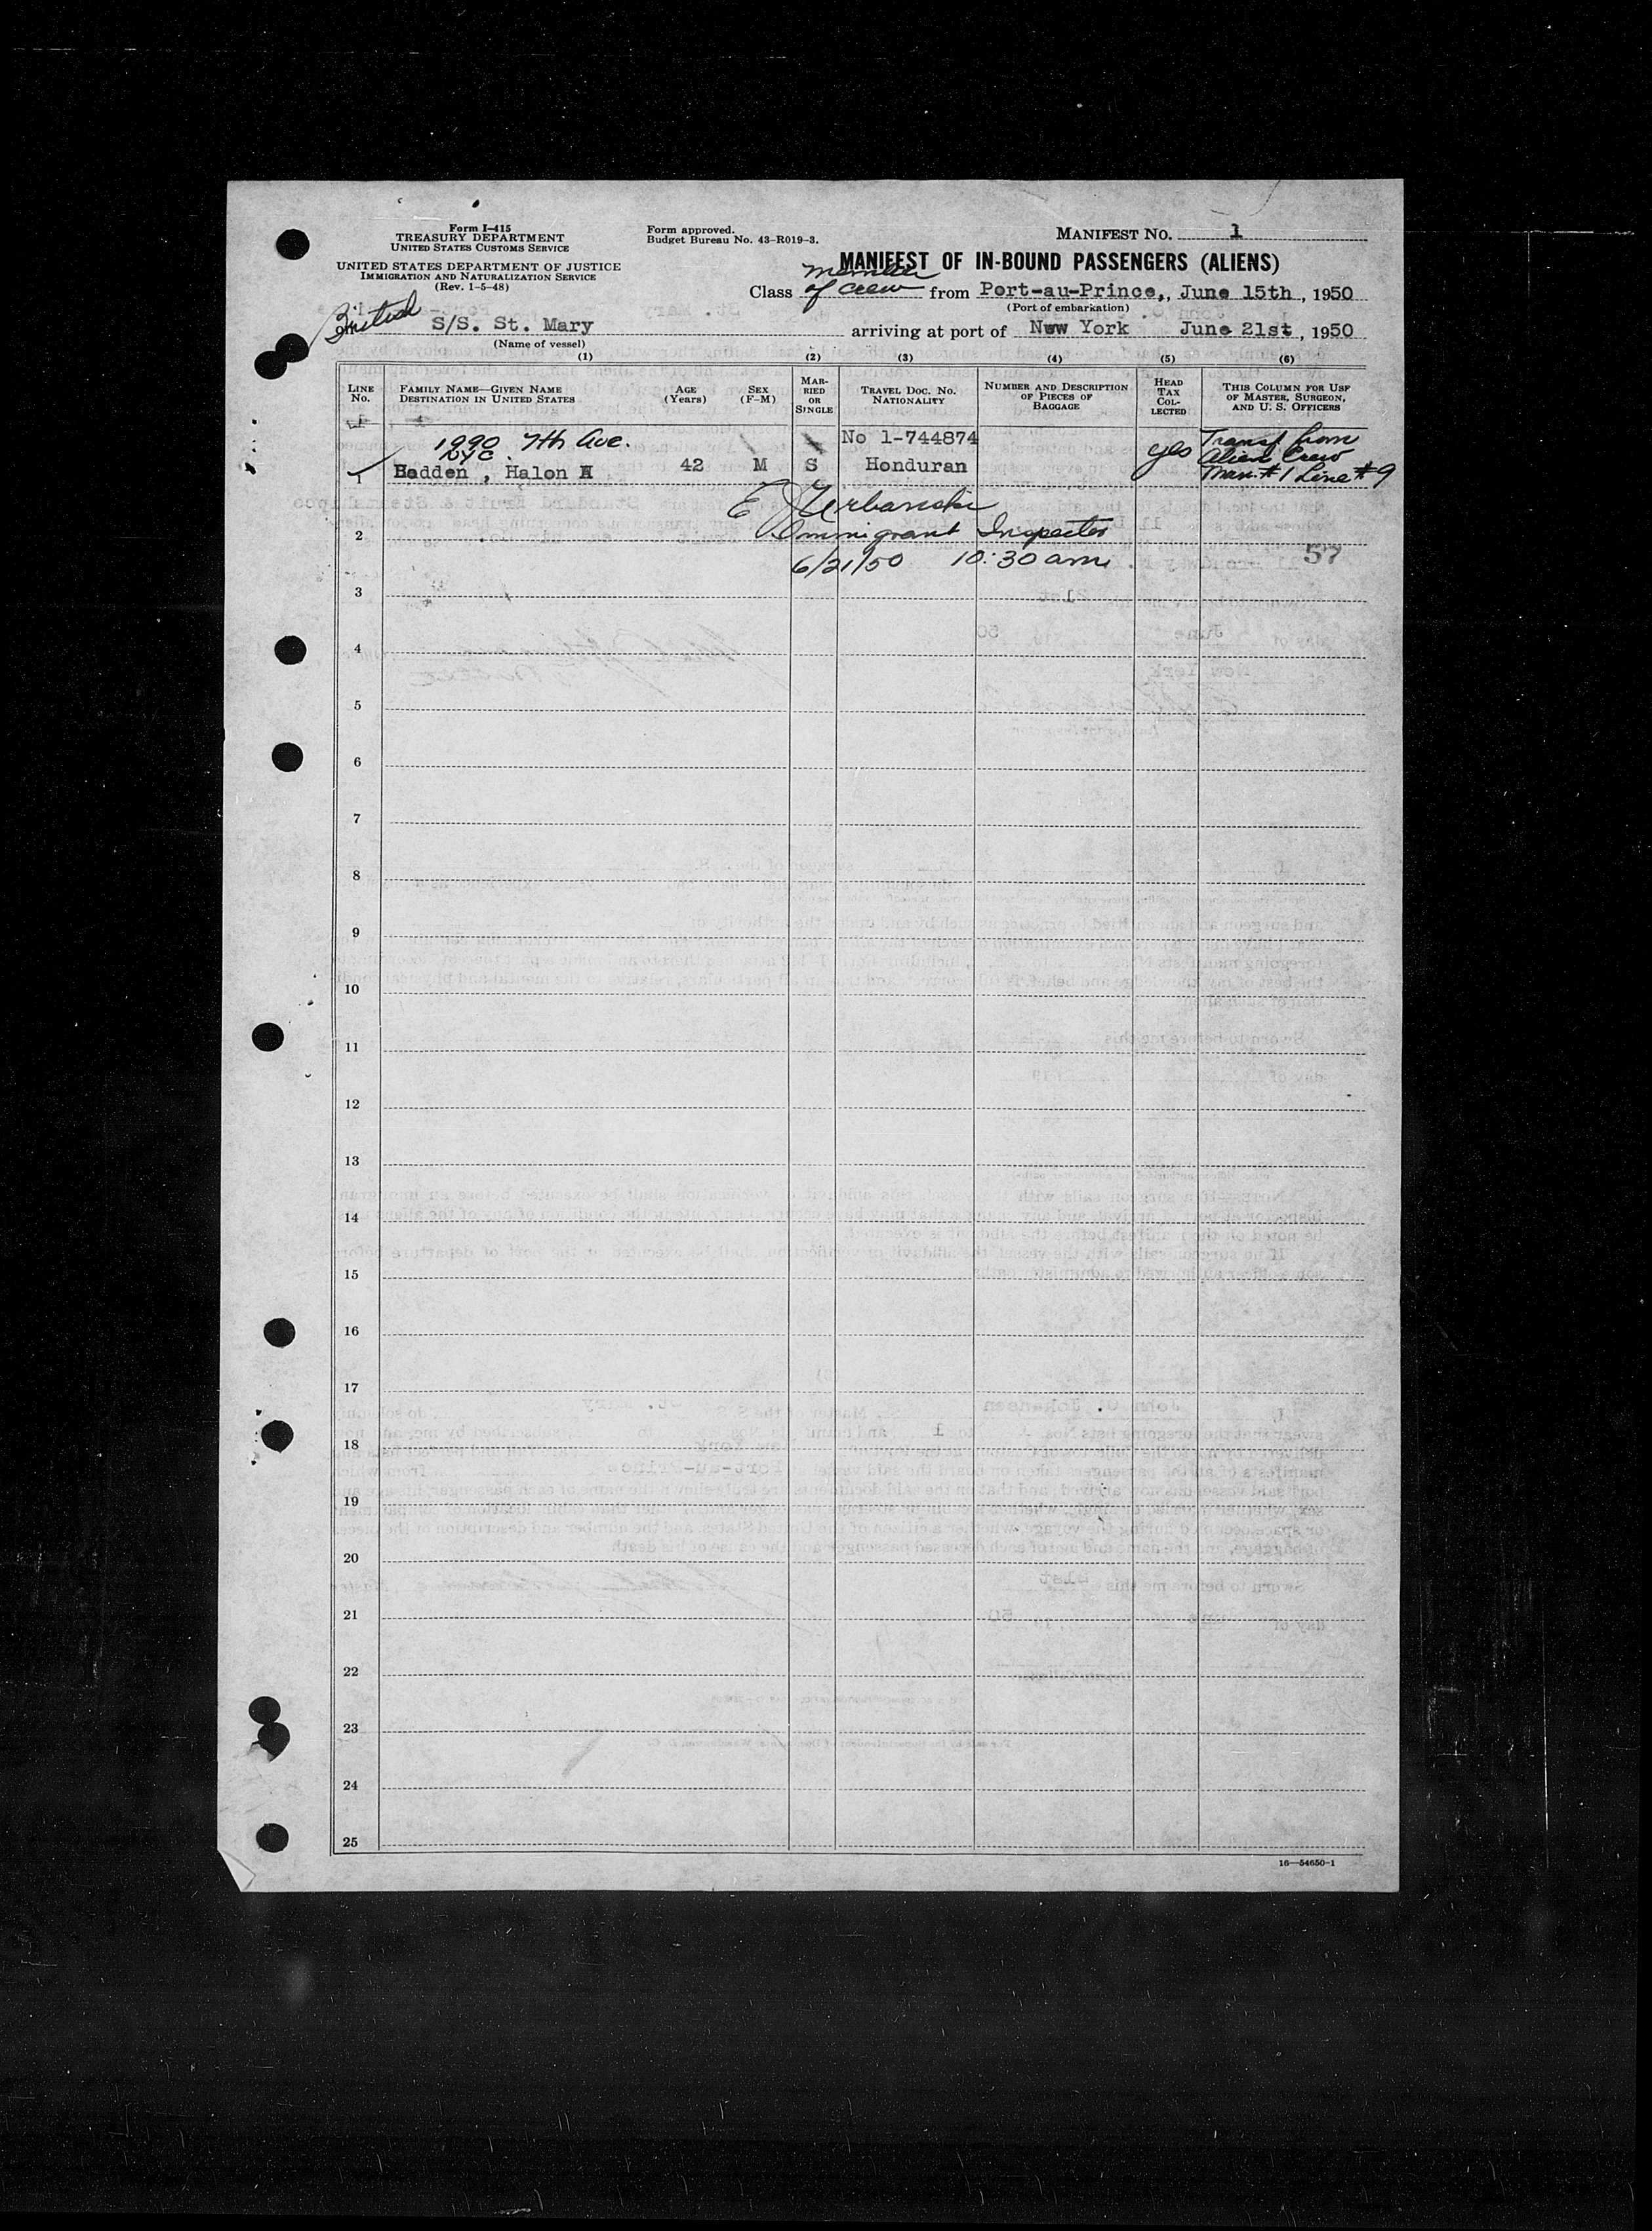 Form I-415
TREASURY DEPARTMENT
UNITED STATES CUSTOMS SERVICE
UNITED STATES DEPARTMENT OF JUSTICE
IMMIGRATION AND NATURALIZATION SERVICE
(Rev. 1-5-48)
Form approved.
Budget Bureau No. 43-R019-3.
MANIFEST NO. 1
MANIFEST OF IN-BOUND PASSENGERS (ALIENS)
Class member of crew from Port-au-Prince,, June 15th, 1950
(Port of embarkation)
British S/S. St. Mary arriving at port of New York June 21st, 1950
(Name of vessel)
(1) (2) (3) (4) (5) (6)
LINE No.
FAMILY NAME—GIVEN NAME
DESTINATION IN UNITED STATES
AGE (Years)
SEX (F-M)
MARRIED OR SINGLE
TRAVEL DOC. NO.
NATIONALITY
NUMBER AND DESCRIPTION OF PIECES OF BAGGAGE
HEAD TAX COLLECTED
THIS COLUMN FOR USE OF MASTER, SURGEON, AND U. S. OFFICERS
1990 7th Ave.
NYC.
No 1-744874
yes
Transf. from
Alien Crew
Man. #1 Line #9
1 Hadden, Halon A 42 M S Honduran
E J Urbanski
Immigrant Inspector
2
6/21/50 10:30 am
57
3
4
5
6
7
8
9
10
11
12
13
14
15
16
17
18
19
20
21
22
23
24
25
16—54650-1